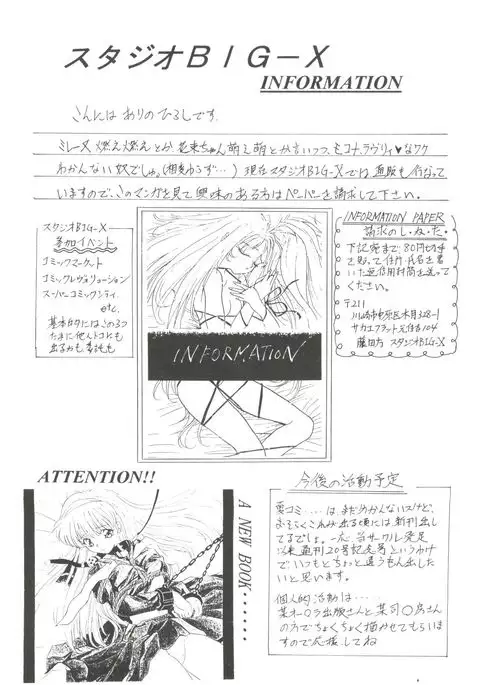 スタジオBIG-X
INFORMATION
こんにはありのひろしです.
ミレーヌ 燃え燃えとか 花束ちゃん萌え萌とか言いつつ、モコナ、ラヴリィ♥なワケ
わかんない奴でしゅ。(相変わらず…) 現在スタジオBIG-Xでは、通販も行なって
いますので、このマンガを見て興味のある方はペーパーを請求して下さい。
スタジオBIG-X
参加イベント
コミックマーケット
コミックレヴォリューション
スーパーコミックシティ
etc.
基本的にはこの3つ
たまに他んトコにも
出るかも
INFORMATION PAPER
請求のし・ね・た・
下記宛まで、80円切手
を貼って住所・氏名を書
いた返信用封筒を送って
ください。
〒211
川崎市中原区木月328-1
サカエフラット元住吉104
藤田方 スタジオBIG-X
INFORMATION
ATTENTION!!
A NEW BOOK······
今後の活動予定
夏コミ……は、まだわかんないスけど、
おそらくこれが出る頃には新刊出し
てるでしょ。一応、当サークル発足
以来週刊20号記念号というわけ
で、いつもとちょっと違うもん出したい
いと思います。
個人的活動は…
某オ一〇ラ出版さんと某司〇房さん
の方でちょくちょく描かせてもらいま
すので応援してね